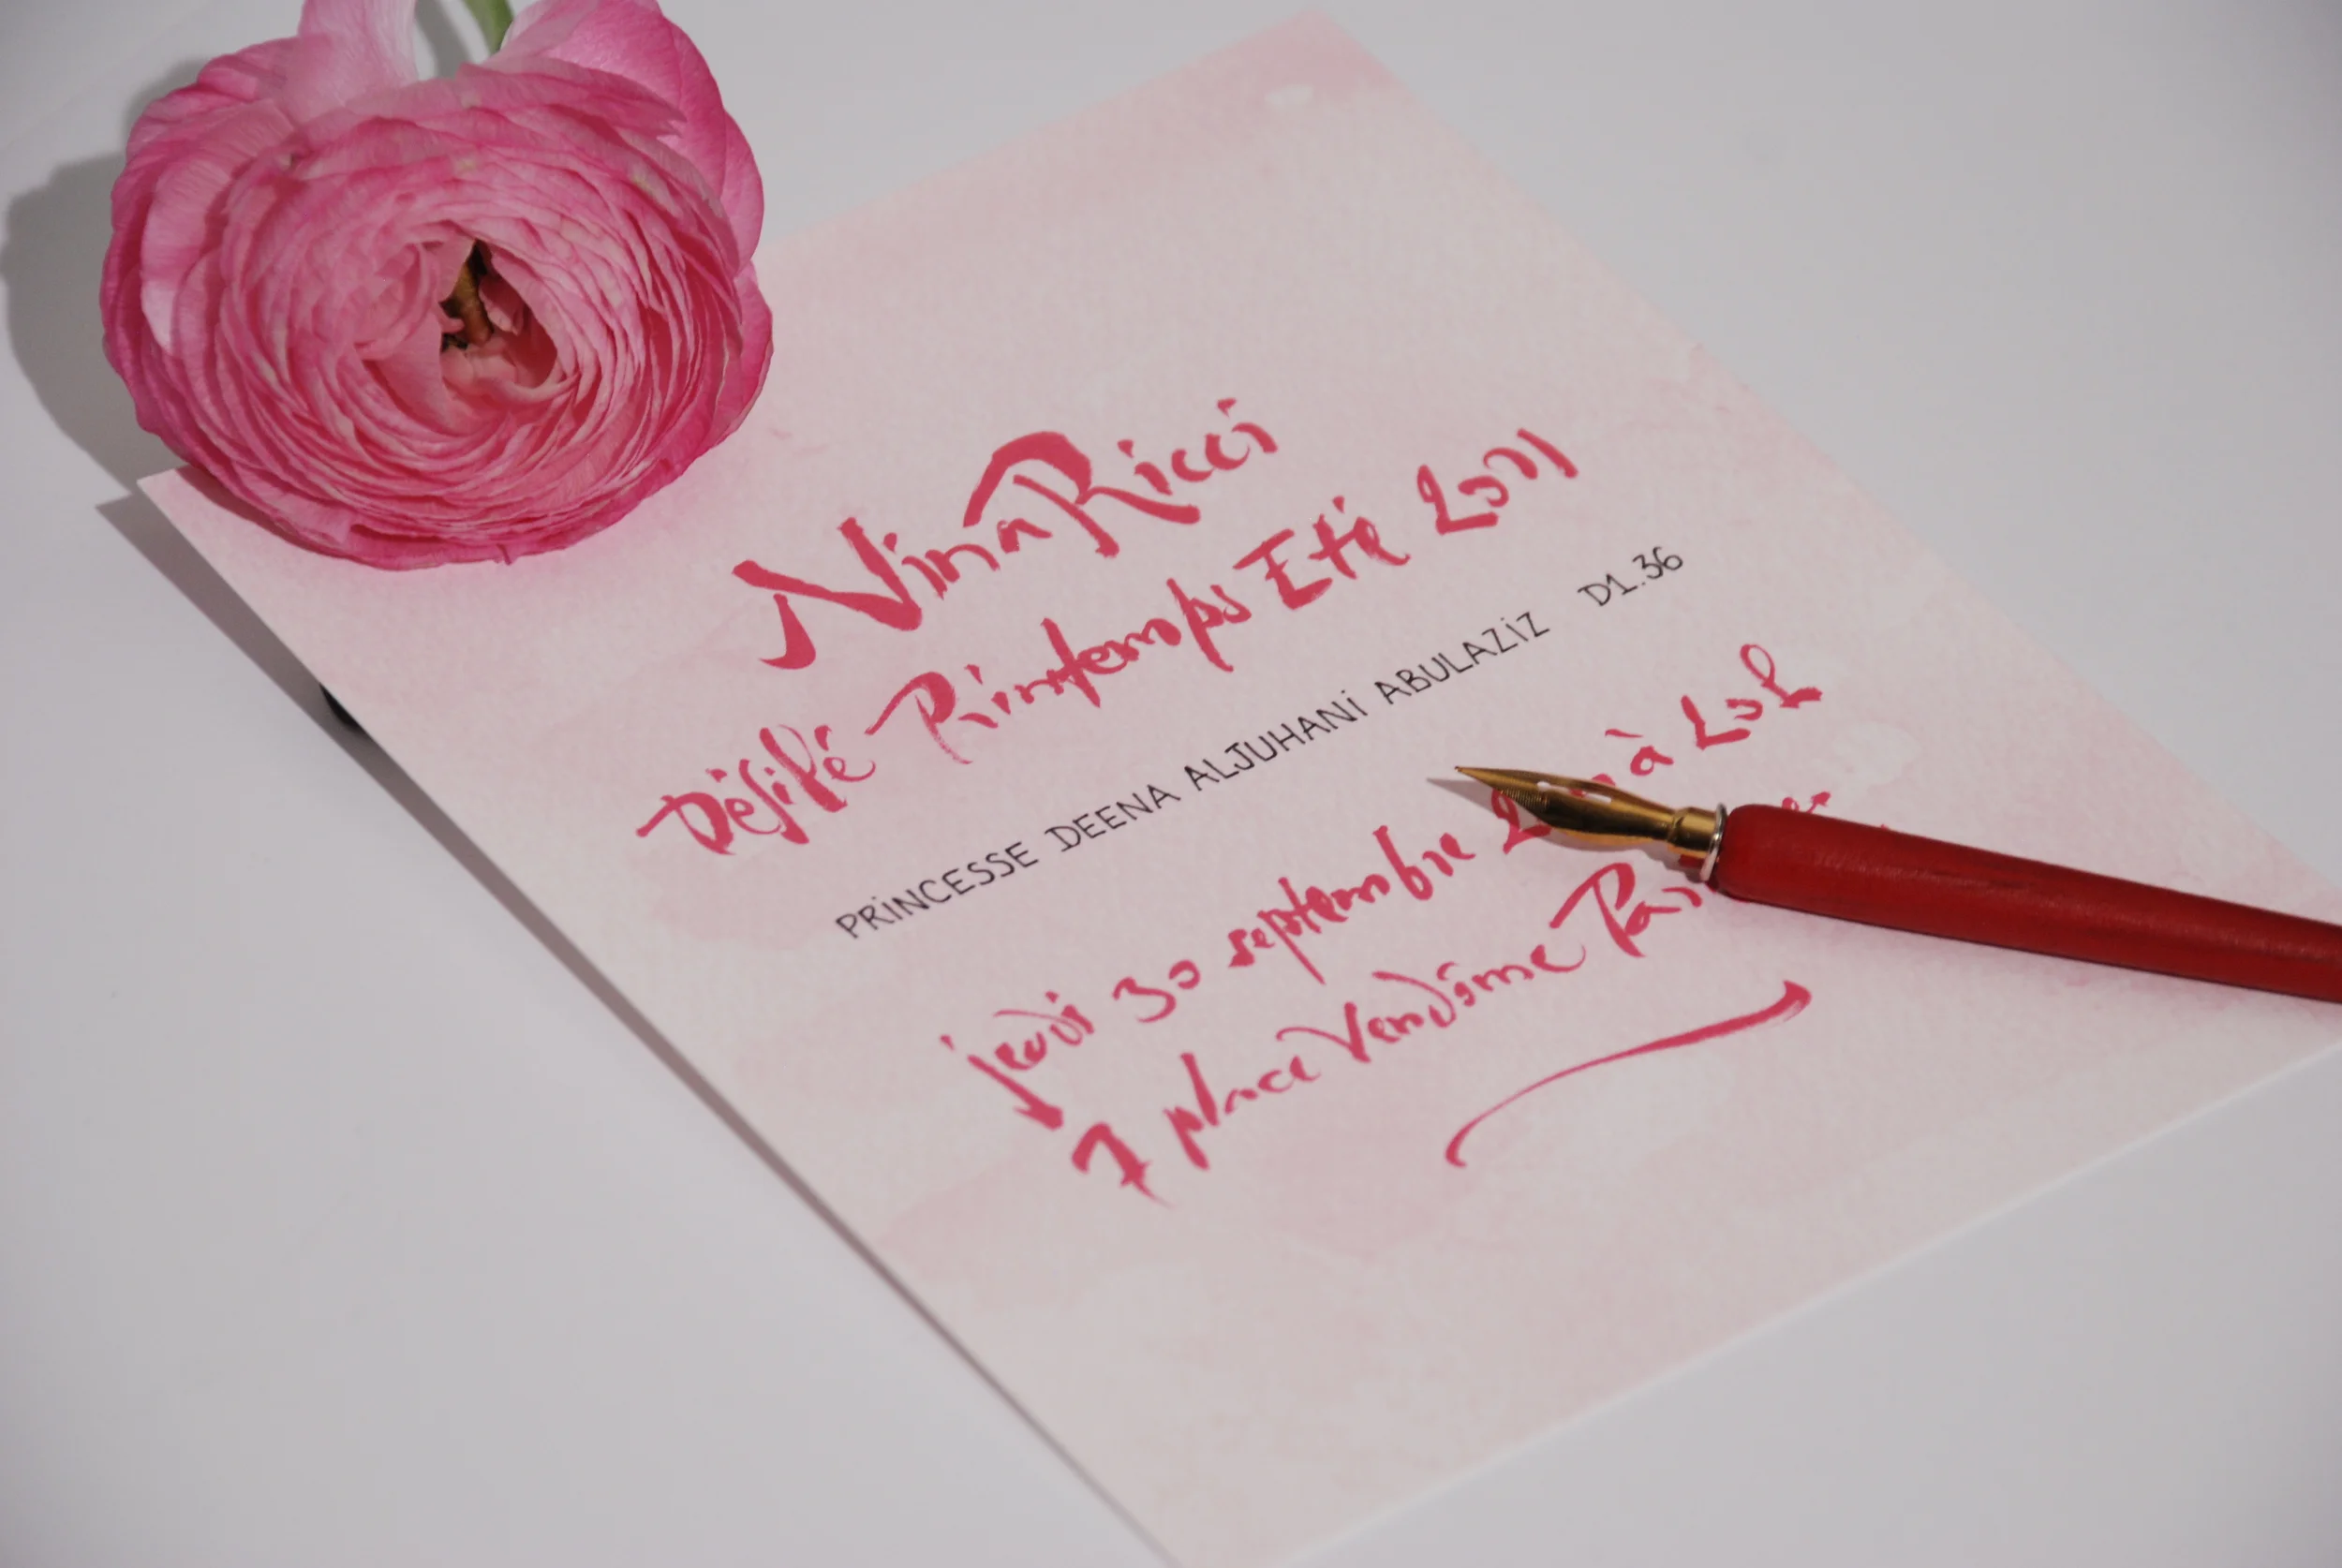 Nina Ricci
Défilé Printemps Eté 2011
PRINCESSE DEENA ALJUHANI ABULAZIZ D1.36
jeudi 30 septembre à 20h
7 place Vendôme Paris